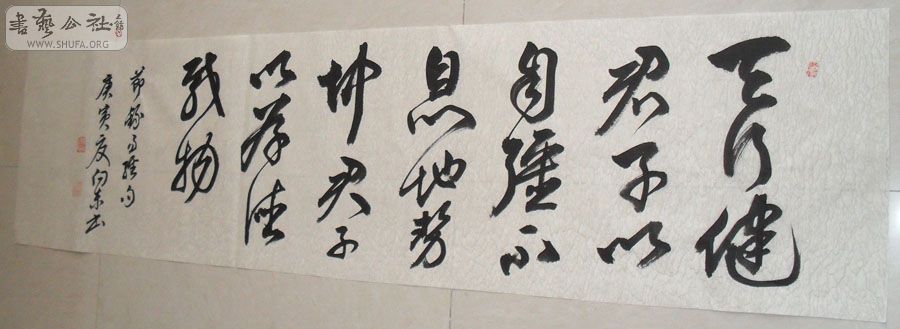 天行健
君子以
自彊不
息地势
坤君子
以厚德
载物
节録易经句
庚寅夏向东书
書藝公社
WWW.SHUFA.ORG